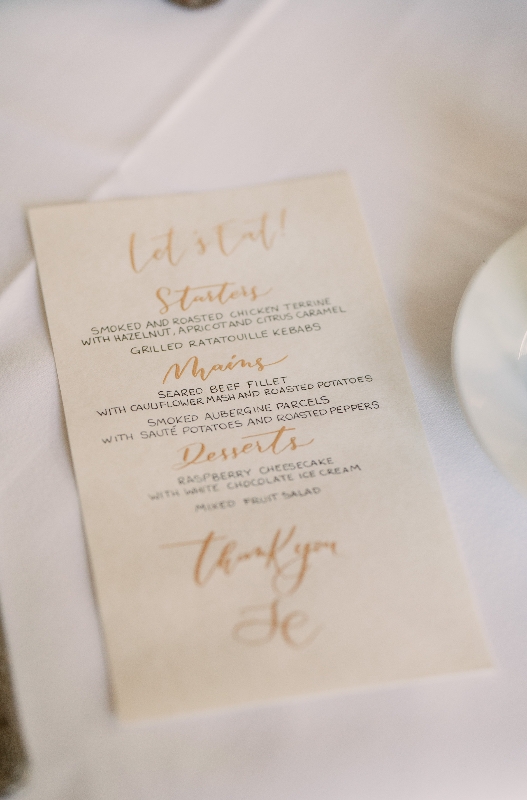 Let's Eat!
Starters
SMOKED AND ROASTED CHICKEN TERRINE
WITH HAZELNUT, APRICOT AND CITRUS CARAMEL
GRILLED RATATOUILLE KEBABS
Mains
SEARED BEEF FILLET
WITH CAULIFLOWER MASH AND ROASTED POTATOES
SMOKED AUBERGINE PARCELS
WITH SAUTÉ POTATOES AND ROASTED PEPPERS
Desserts
RASPBERRY CHEESECAKE
WITH WHITE CHOCOLATE ICE CREAM
MIXED FRUIT SALAD
Thank you